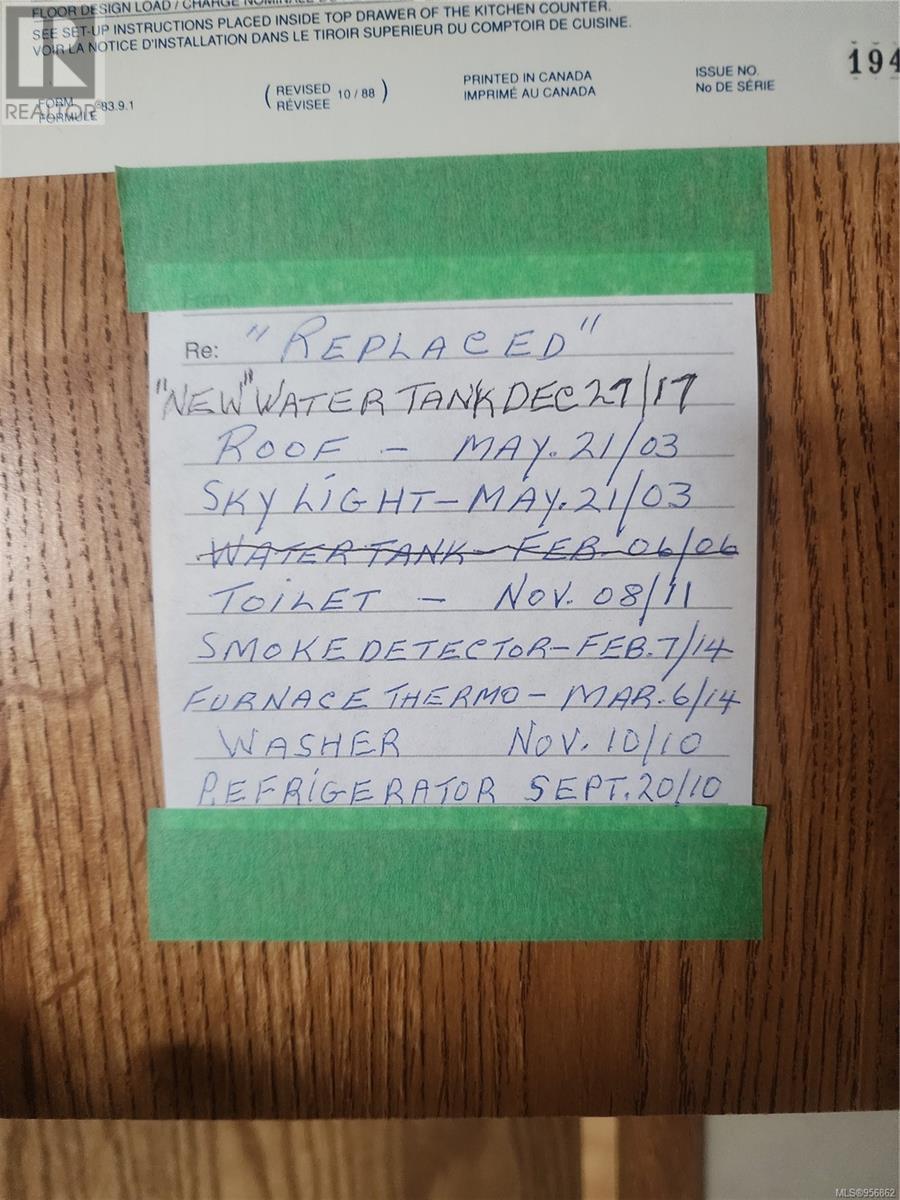 FLOOR DESIGN LOAD / CHARGE NOMINALE
SEE SET-UP INSTRUCTIONS PLACED INSIDE TOP DRAWER OF THE KITCHEN COUNTER.
VOIR LA NOTICE D'INSTALLATION DANS LE TIROIR SUPERIEUR DU COMPTOIR DE CUISINE.
REALTOR®
FORM
FORMULE 83.9.1
( REVISED
RÉVISÉE 10 / 88 )
PRINTED IN CANADA
IMPRIMÉ AU CANADA
ISSUE NO.
No DE SÉRIE
194
From
Re: "REPLACED"
"NEW" WATER TANK DEC 27/17
ROOF - MAY. 21/03
SKY LIGHT - MAY. 21/03
WATER TANK - FEB. 06/06
TOILET - NOV. 08/11
SMOKE DETECTOR - FEB. 7/14
FURNACE THERMO - MAR. 6/14
WASHER NOV. 10/10
REFRIGERATOR SEPT. 20/10
MLS®956862